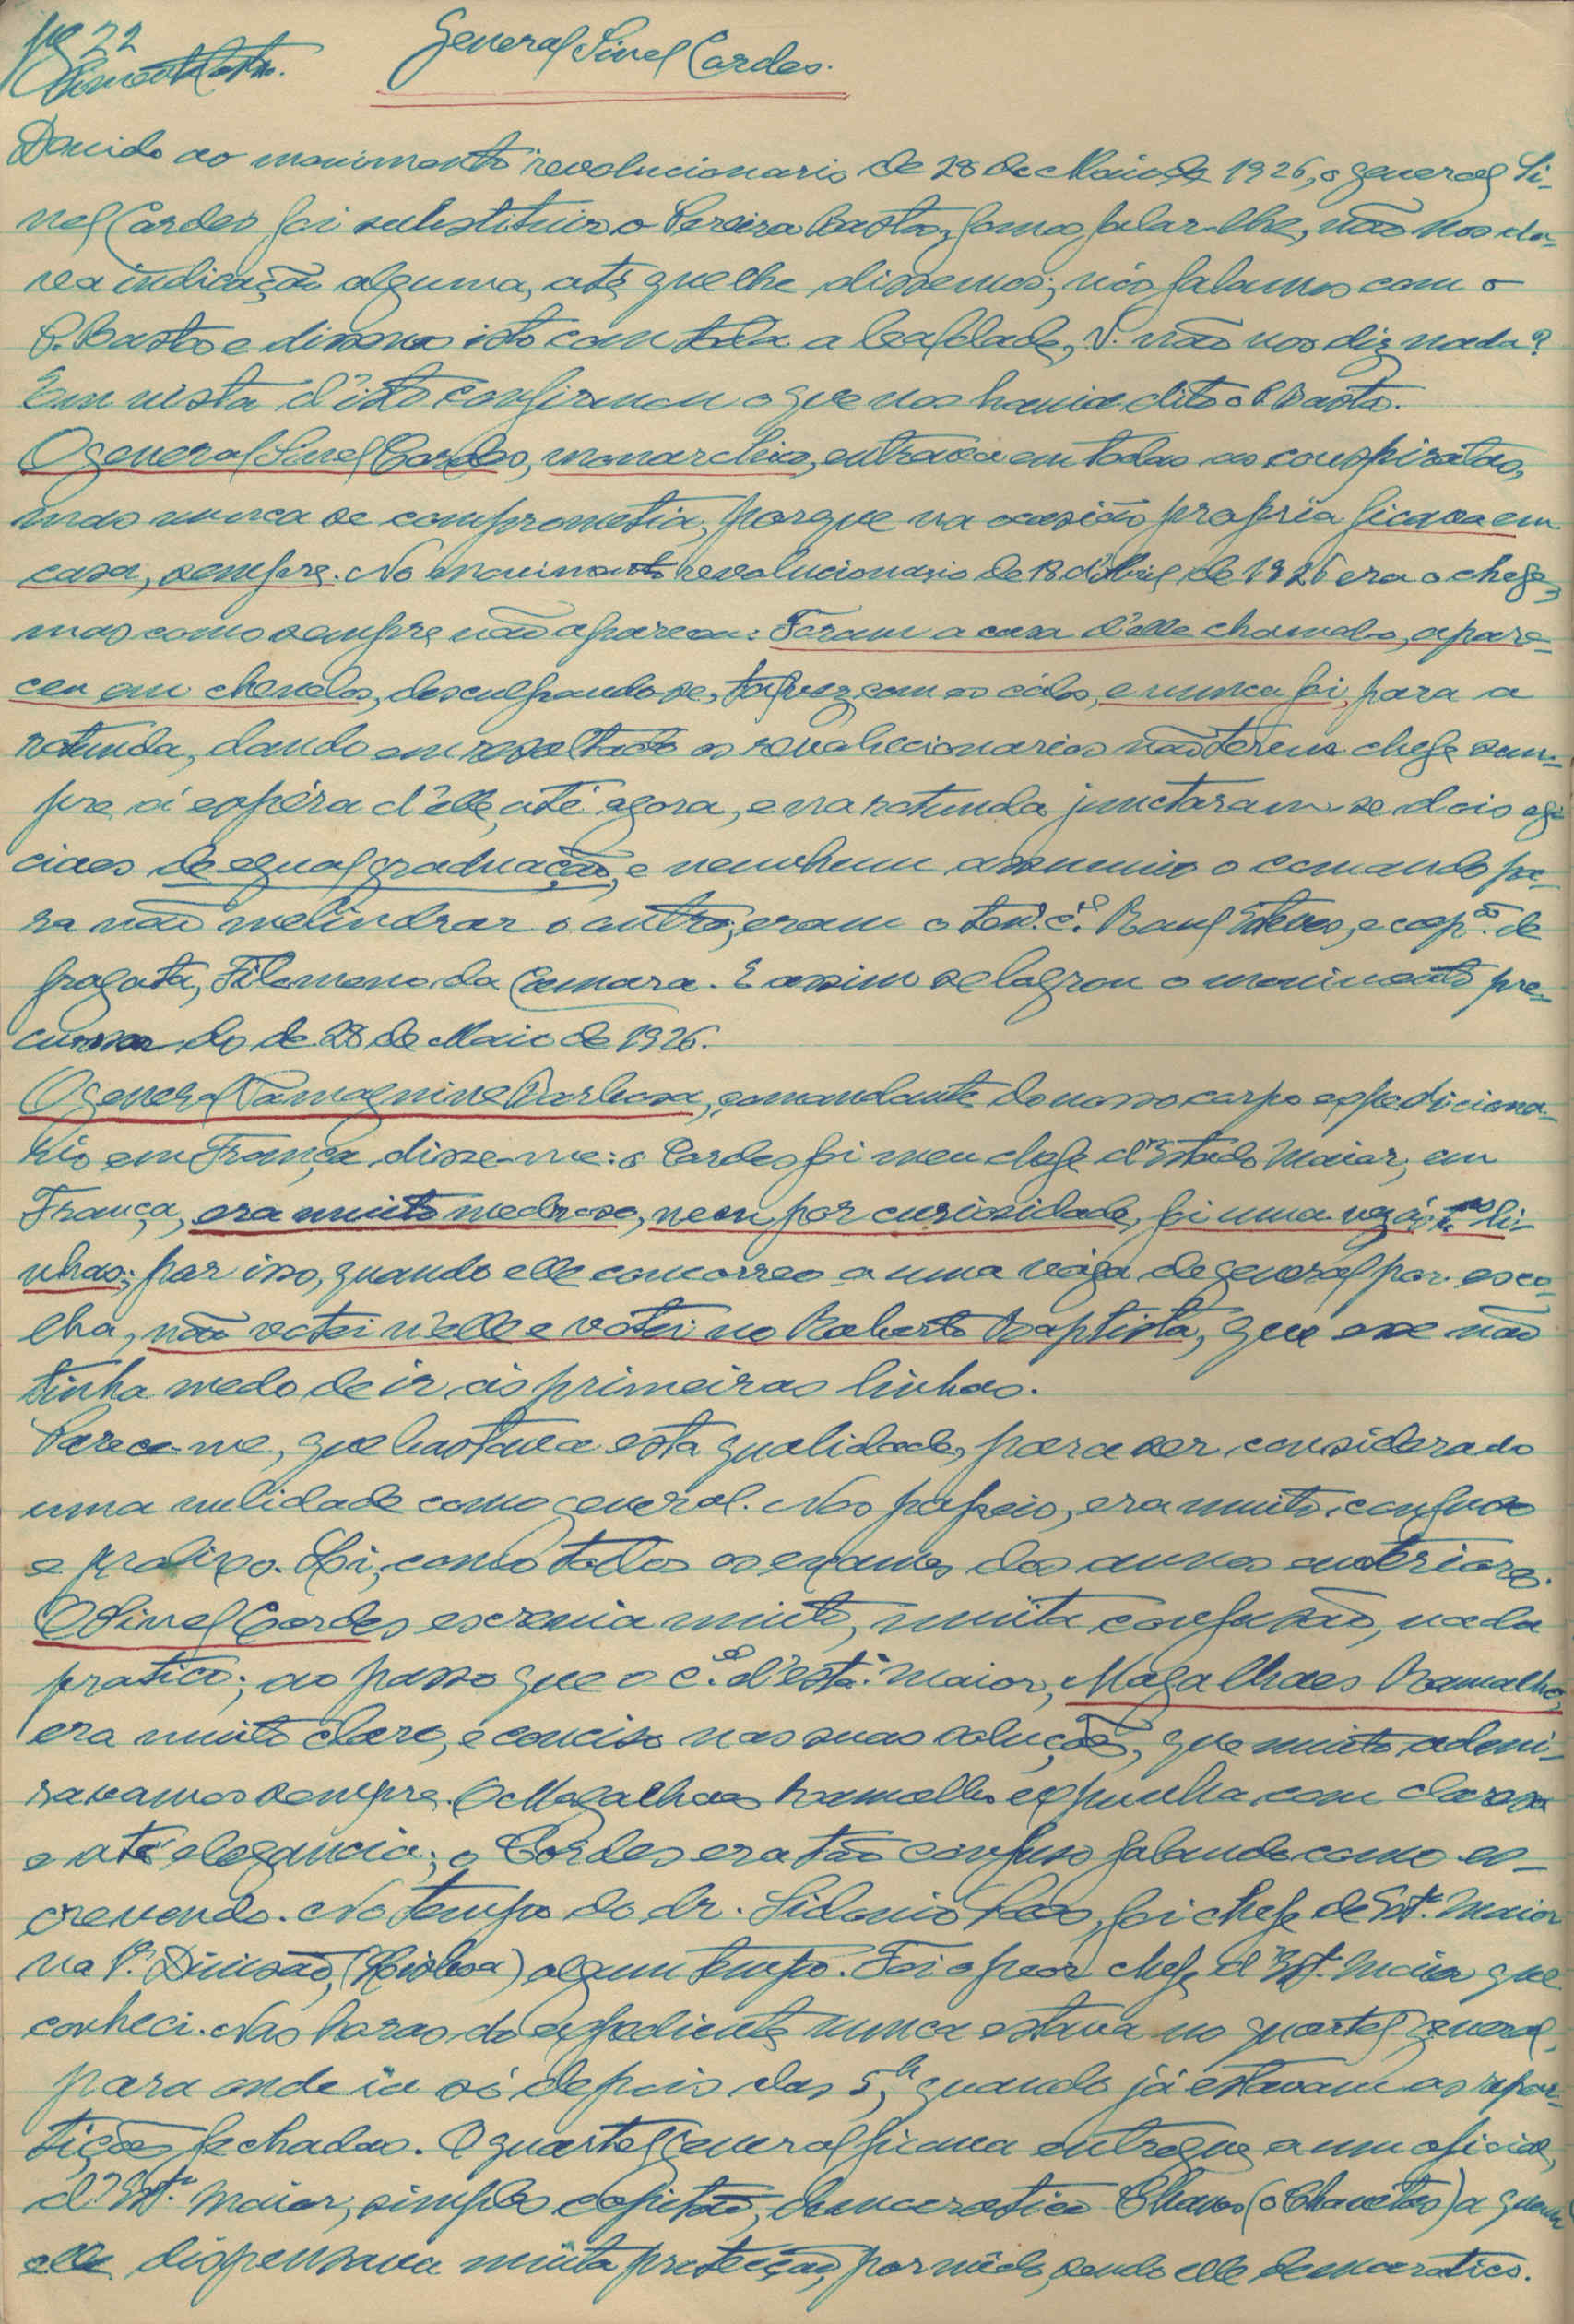 pg 22
General Sinel Cordes.
Devido ao movimento revolucionario de 28 de Maio de 1926, o general Si-
nel Cordes foi substituir o Pereira Bastos, fomos falar-lhe, não nos da-
va indicação alguma, até que lhe dissemos; nós falamos com o
P. Bastos e disse-nos isto com toda a lealdade, V. não nos diz nada?
Em vista d'isto confirmou o que nos havia dito o P. Bastos.
O general Sinel Cordes, monarchico, entrava em todas as conspiratas,
mas nunca se comprometia, porque na ocasião propria ficava em
casa, sempre. No movimento revolucionario de 18 d'Abril de 1926 era o chefe,
mas como sempre não apareceu: Foram a casa d'elle chamal-o, apare-
ceu em chinelos, desculpando-se, talvez com os cálos, e nunca foi, para a
rotunda, dando em resultado os revolucionarios não terem chefe sem-
pre á espéra d'elle, até agora, e na rotunda junctaram-se dois ofi-
ciaes de egual graduação, e nenhum assumiu o comando pa-
ra não melindrar o outro, eram o ten.e c.el Raul Esteves, e cap.ão de
fragata, Filomeno da Camara. E assim se logrou o movimento pre-
cursor do de 28 de Maio de 1926.
O general Tamagnini Barbosa, comandante do nosso corpo expediciona-
rio em França, disse-me: o Cordes foi meu chefe d'Estado Maior, em
França, era muito medroso, nem por curiosidade, foi uma vez ás li-
nhas; por isso, quando elle concorreo a uma vága de general por esco-
lha, não votei n'elle e votei no Roberto Baptista, que esse não
tinha medo de ir ás primeiras linhas.
Parece-me, que bastava esta qualidade, para ser considerado
uma nulidade como general. Nos papeis, era muito confuso
e prolixo. Li, como todos os exames dos annos anteriores.
O Sinel Cordes escrevia muito, muita confusão, nada
pratico; ao passo que o c.el d'est.º Maior, Magalhaes Ramalho,
era muito claro, e conciso nas suas soluções, que muito admi-
ravamos sempre. O Magalhaes Ramalho expunha com clareza
e até elegancia; o Cordes era tão confuso falando como es-
crevendo. No tempo do dr. Sidonio Paes, foi chefe de Est.º Maior
na 1ª. Divisão, (Lisboa) algum tempo. Foi o peor chefe d'Est.º Maior que
conheci. Nas horas do expediente nunca estava no quartel general,
para onde ia só depois das 5h, quando já estavam as repar-
tições fechadas. O quartel general ficava entregue a um oficial,
d'Est.º Maior, simples capitão, democratico Chaves (o Chavitas) a quem
elle dispensava muita proteição, por mêdo, sendo elle democratico.